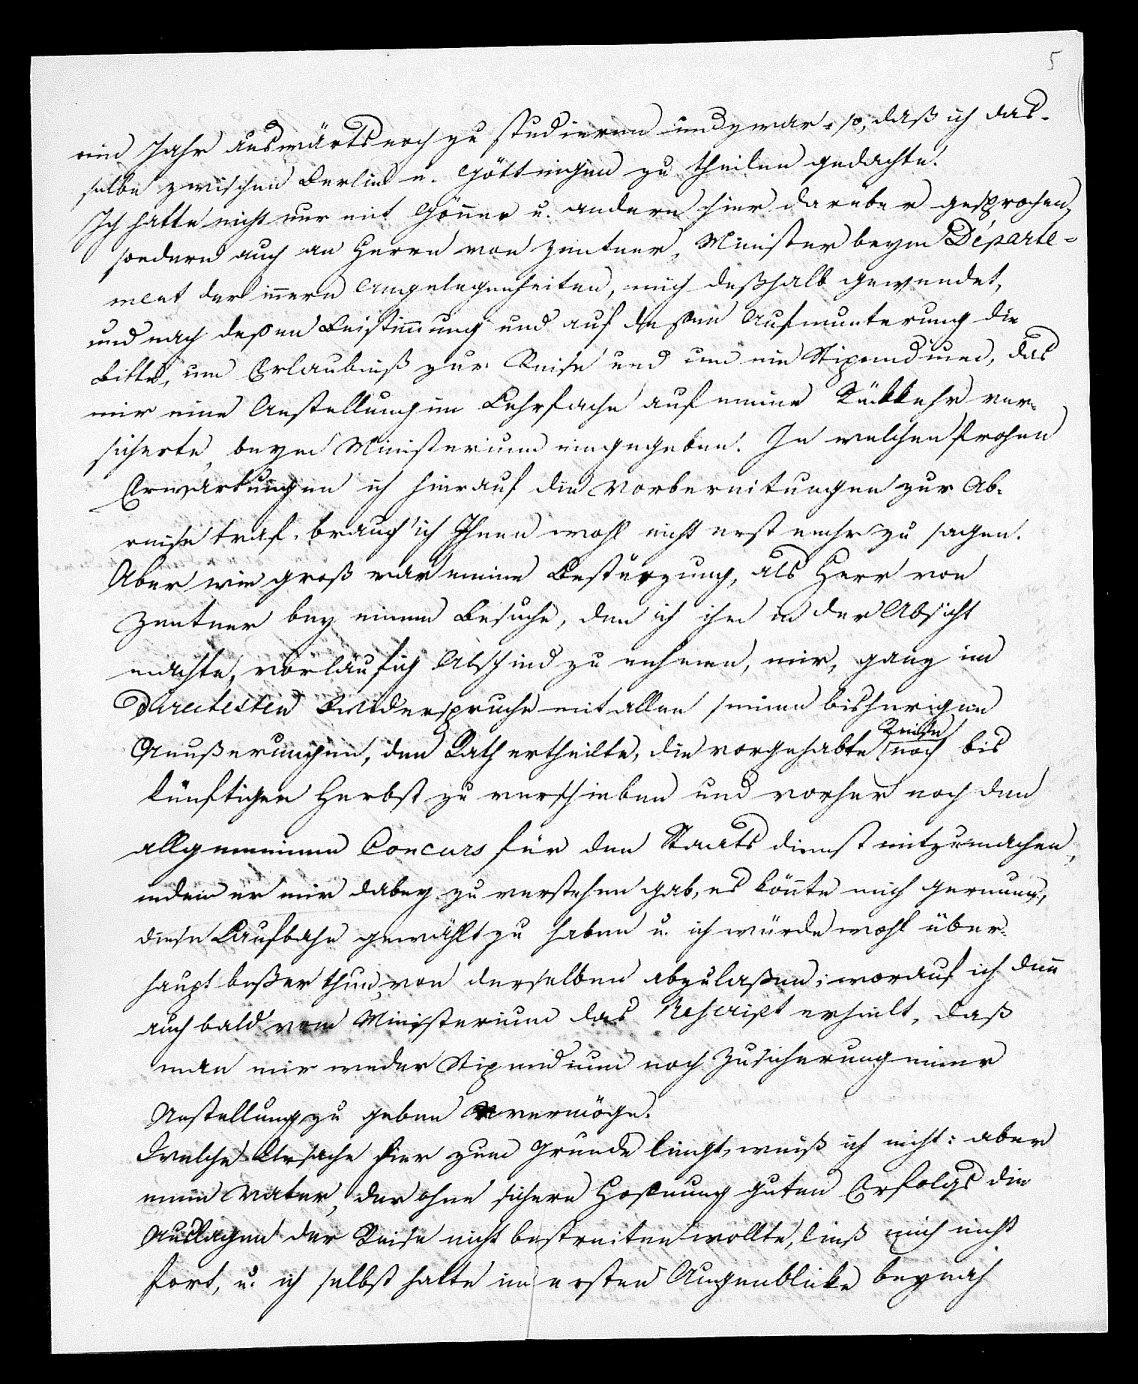 5
ein Jahr auswärts noch zu studieren und zwar so, daß ich das-
selbe zwischen Berlin u. Göttingen zu theilen gedachte.
Ich hatte nicht nur mit Gönner u. andern hier darüber gesprochen,
sondern auch an Herrn von Zentner, Minister beym Departe-
ment der innern Angelegenheiten, mich deßhalb gewendet,
und nach deßen Beistimmung und auf deßen Aufmunterung die
Bitte, um Erlaubniß zur Reise und um ein Stipendium, das
mir eine Anstellung im Lehrfache auf meine Rückkehr ver-
sicherte, beym Ministerium eingegeben. In welchen frohen
Erwartungen ich hierauf die Vorbereitungen zur Ab-
reise traf, brauch' ich Ihnen wohl nicht erst mehr zu sagen.
Aber wie groß war meine Bestürzung, als Herr von
Zentner bey einem Besuche, den ich ihm in der Absicht
machte, vorläufig Abschied zu nehmen, mir, ganz im
directesten Widerspruche mit allen seinen bisherigen
Aeußerungen, den Rath ertheilte, die vorgehabte Reise noch bis
künftigen Herbst zu verschieben und vorher noch den
allgemeinen Concurs für den Staatsdienst mitzumachen,
indem er mir dabey zu verstehen gab, es könnte mich gereuen,
diese Laufbahn gewählt zu haben u. ich würde wohl über-
haupt beßer thun, von derselben abzulaßen; worauf ich dann
auch bald vom Ministerium das Rescript erhielt, daß
man mir weder Stipendium noch Zusicherung einer
Anstellung zu geben vermöge.
Welche Ursache hier zum Grunde liegt, weiß ich nicht: aber
mein Vater, der ohne sichere Hoffnung guten Erfolgs die
Auslagen der Reise nicht bestreiten wollte, ließ mich nicht
fort, u. ich selbst hatte im ersten Augenblicke beynah